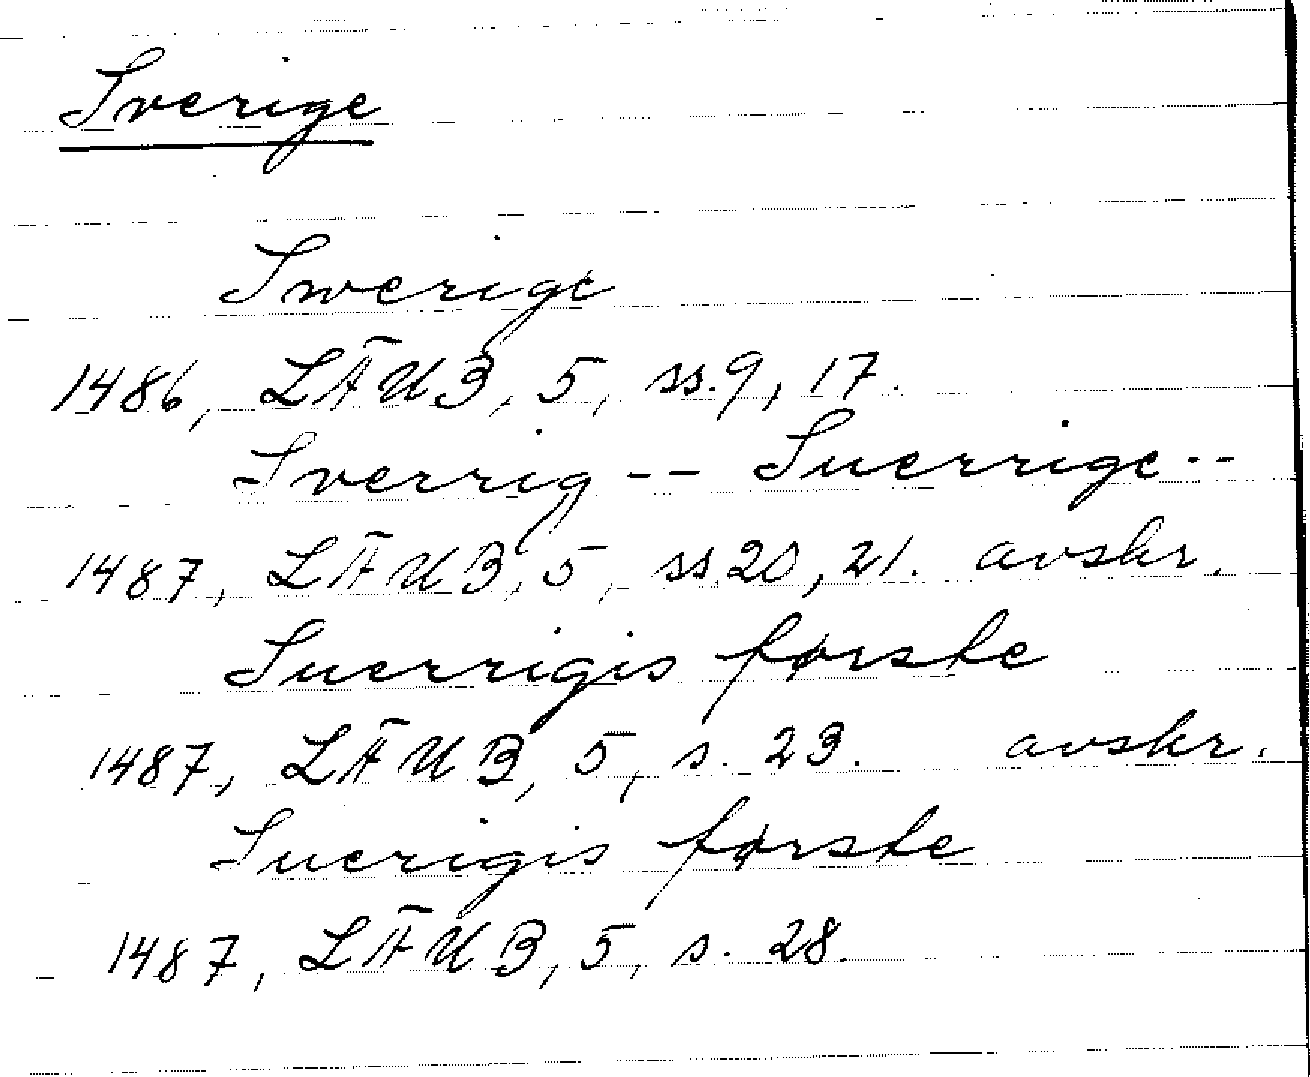 Sverige
Swerige
1486, LÄUB, 5, ss. 9, 17.
Sverrig -- Suerrige --
1487, LÄUB, 5, ss 20, 21. avskr.
Suerrigis første
1487, LÄUB, 5, s. 23. avskr.
Suerigis første
1487, LÄUB, 5, s. 28.